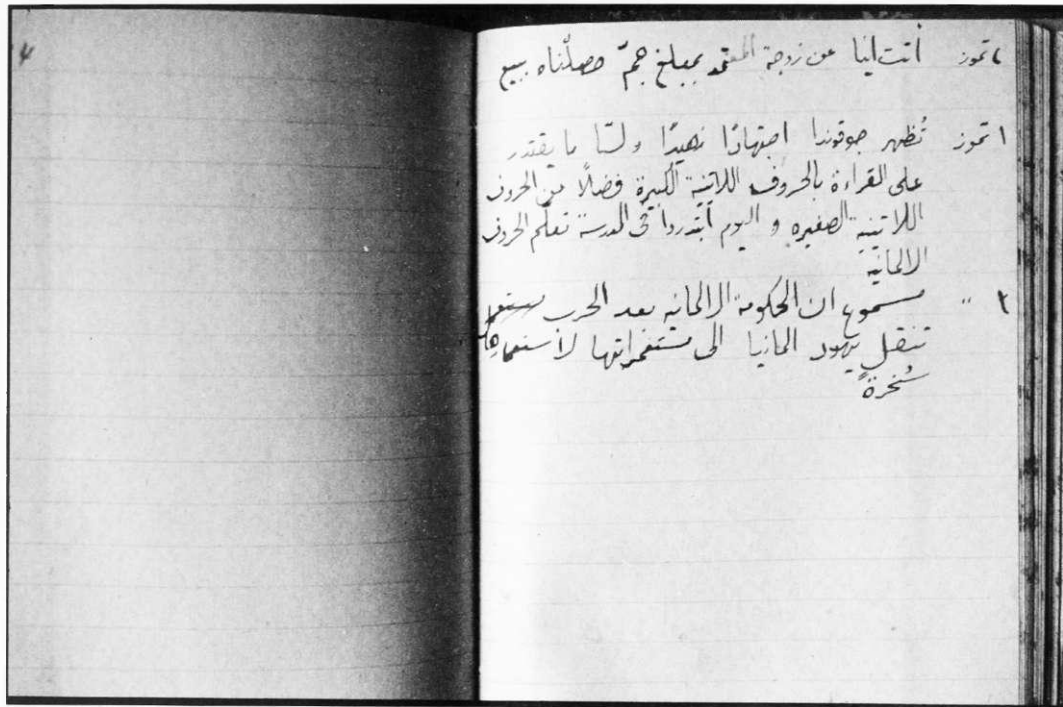 تموز أتت الينا عن زوجة المعتمد بمبلغ جمّ حصلناه ببيع
١ تموز تُظهر جوقوندا اجتهادًا زهيدًا ولمّا ما يقتدر
على القراءة بالحروف اللاتينية الكبيرة فضلًا من الحروف
اللاتينية الصغيره و اليوم أبتدروا في المدرسة تعلّم الحروف
الالمانية
٢ " مسموع ان الحكومة الالمانيه بعد الحرب
تنقل يهود المانيا الى مستعمراتها لأستعمالها
سُخرةً